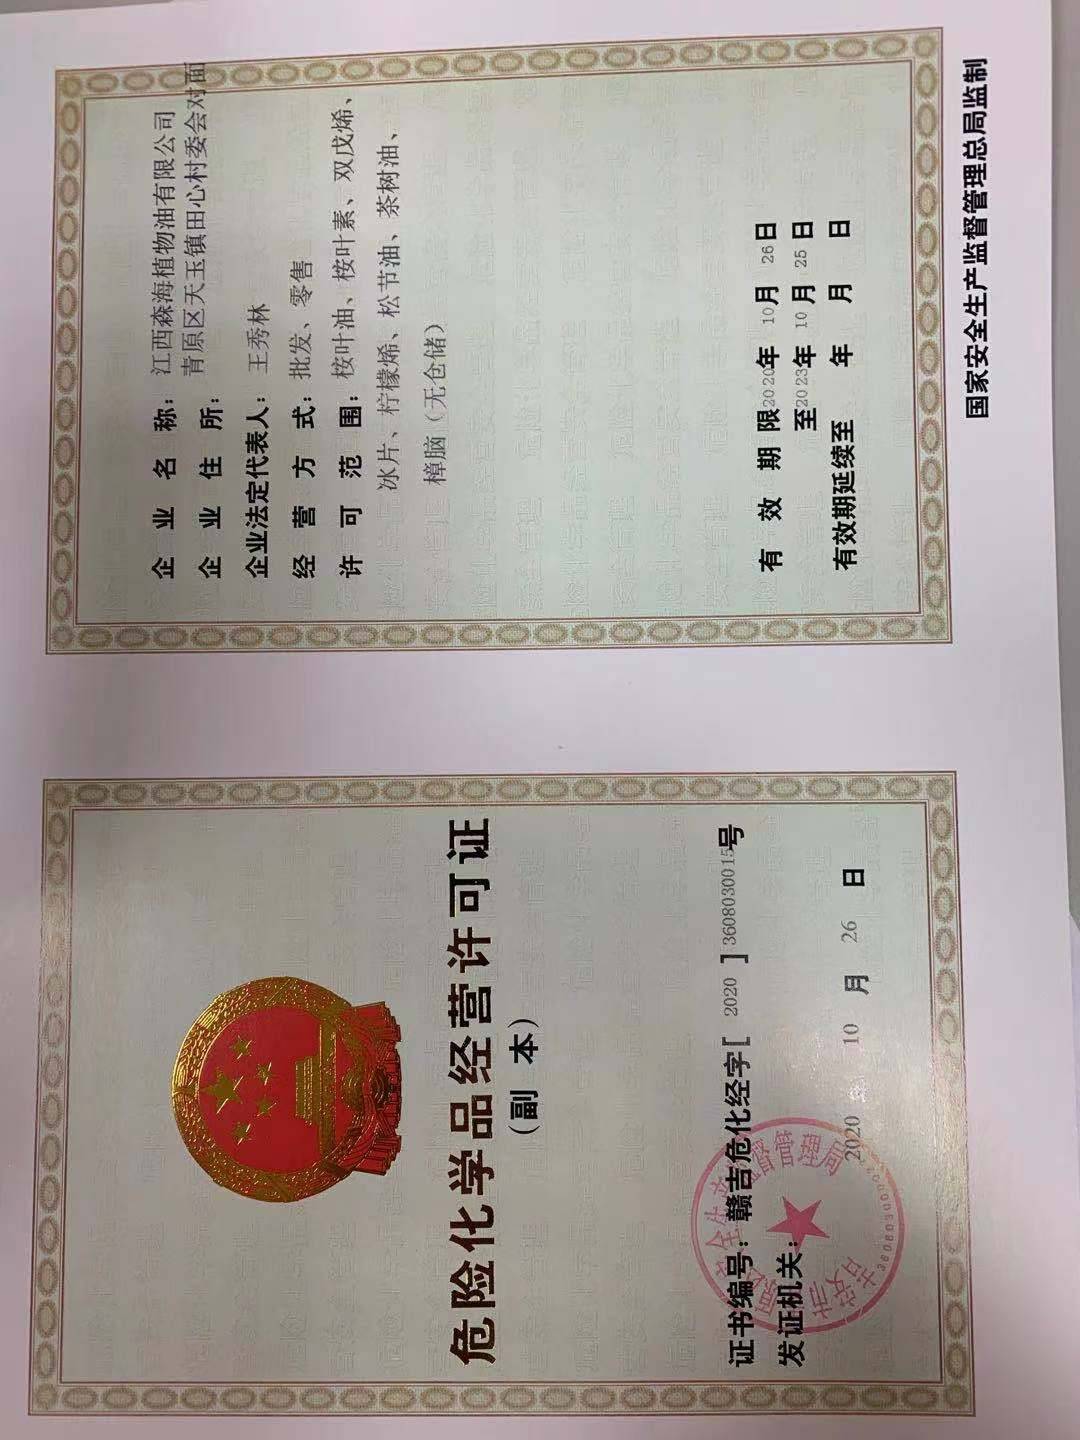 危险化学品经营许可证
（副 本）
证书编号：赣吉危化经字[ 2020 ]3608030015号
发证机关：
2020 年 10 月 26 日
企业名称：江西森海植物油有限公司
企业住所：青原区天玉镇田心村委会对面
企业法定代表人：王秀林
经营方式：批发、零售
许可范围：桉叶油、桉叶素、双戊烯、
冰片、柠檬烯、松节油、茶树油、
樟脑（无仓储）
有效期限2020年 10月 26日
至2023年 10月 25日
有效期延续至 年 月 日
国家安全生产监督管理总局监制